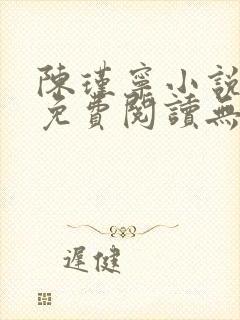 陳瑾寧小說
免費閱讀無
遲健